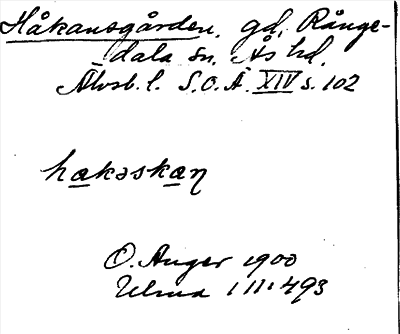 Håkansgården, gd, Rånge-
dala sn, Ås hd,
Älvsb. l. S.O.Ä. XIV s. 102
hakəskan
O. Anger 1900
Ulma 111:493